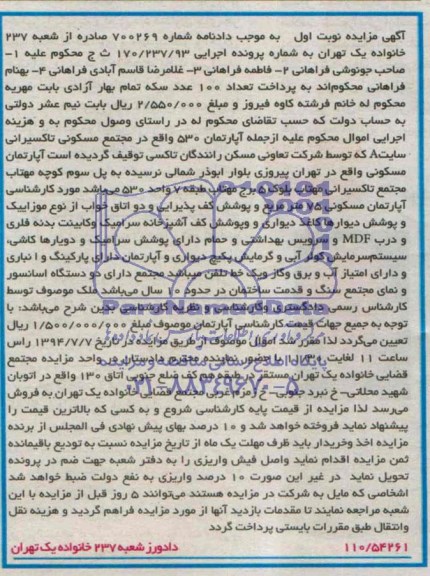 آگهی مزایده نوبت اول به موجب دادنامه شماره ۷۰۰۲۶۹ صادره از شعبه ۲۳۷
خانواده یک تهران به شماره پرونده اجرایی ۱۷۰/۲۳۷/۹۳ ث ج محکوم علیه ۱-
صاحب جونوشی فراهانی ۲- فاطمه فراهانی ۳- غلامرضا قاسم آبادی فراهانی ۴- بهنام
فراهانی محکوم‌اند به پرداخت تعداد ۱۰۰ عدد سکه تمام بهار آزادی بابت مهریه
محکوم له خانم فرشته کاوه فیروز و مبلغ ۲/۵۵۰/۰۰۰ ریال بابت نیم عشر دولتی
به حساب دولت که حسب تقاضای محکوم له در راستای وصول محکوم به و هزینه
اجرایی اموال محکوم علیه ازجمله آپارتمان ۵۳۰ واقع در مجتمع مسکونی تاکسیرانی
سایتA که توسط شرکت تعاونی مسکن رانندگان تاکسی توقیف گردیده است آپارتمان
مسکونی واقع در تهران پیروزی بلوار ابوذر شمالی نرسیده به پل سوم کوچه مهتاب
مجتمع تاکسیرانی مهتاب بلوک ۵ برج مهتاب طبقه ۷ واحد ۵۳۰ می‌باشد مورد کارشناسی
آپارتمان مسکونی ۷۵ متر مربع و پوشش کف پذیرایی و دو اتاق خواب از نوع موزاییک
و پوشش دیوارها کاغذ دیواری و پوشش کف آشپزخانه سرامیک وکابینت بدنه فلزی
و درب MDF و سرویس بهداشتی و حمام دارای پوشش سرامیک و دیوارها کاشی،
سیستم‌سرمایش کولر آبی و گرمایش پکیج دیواری و آپارتمان دارای پارکینگ و انباری
و دارای امتیاز آب و برق وگاز ویک خط تلفن میباشد مجتمع دارای دو دستگاه اسانسور
و نمای مجتمع سنگ و قدمت ساختمان در حدود ۱۰ سال می‌باشد ملک موصوف توسط
کارشناس رسمی دادگستری وکارشناسی و نظریه کارشناسی بدین شرح می‌باشد: با
توجه به جمیع جهات قیمت کارشناسی آپارتمان موصوف مبلغ ۱/۵۰۰/۰۰۰/۰۰۰ ریال
تعیین می‌گردد لذا مقرر شد اموال موصوف از طریق مزایده در تاریخ ۱۳۹۴/۷/۷ راس
ساعت ۱۱ لغایت با حضور نماینده محترم دادستان در واحد مزایده مجتمع
قضایی خانواده یک تهران مستقر در طبقه هم کف ضلع جنوبی اتاق ۱۳۰ واقع در اتوبان
شهید محلاتی- خ نبرد جنوبی- خ زمزم غربی مجتمع قضایی خانواده یک تهران به فروش
می‌رسد لذا مزایده از قیمت پایه کارشناسی شروع و به کسی که بالاترین قیمت را
پیشنهاد نماید فروخته خواهد شد و ۱۰ درصد بهای پیش نهادی فی المجلس از برنده
مزایده اخذ وخریدار باید ظرف مهلت یک ماه از تاریخ مزایده نسبت به تودیع باقیمانده
ثمن مزایده اقدام نماید واصل فیش واریزی را به دفتر شعبه جهت ضم در پرونده
تحویل نماید در غیر این صورت ۱۰ درصد واریزی به نفع دولت ضبط خواهد شد
اشخاصی که مایل به شرکت در مزایده هستند می‌توانند ۵ روز قبل از مزایده با این
شعبه مراجعه نمایند تا مقدمات بازدید آنها از مورد مزایده فراهم گردید و هزینه نقل
وانتقال طبق مقررات بایستی پرداخت گردد
۱۱۰/۵۴۲۶۱ دادورز شعبه ۲۳۷ خانواده یک تهران